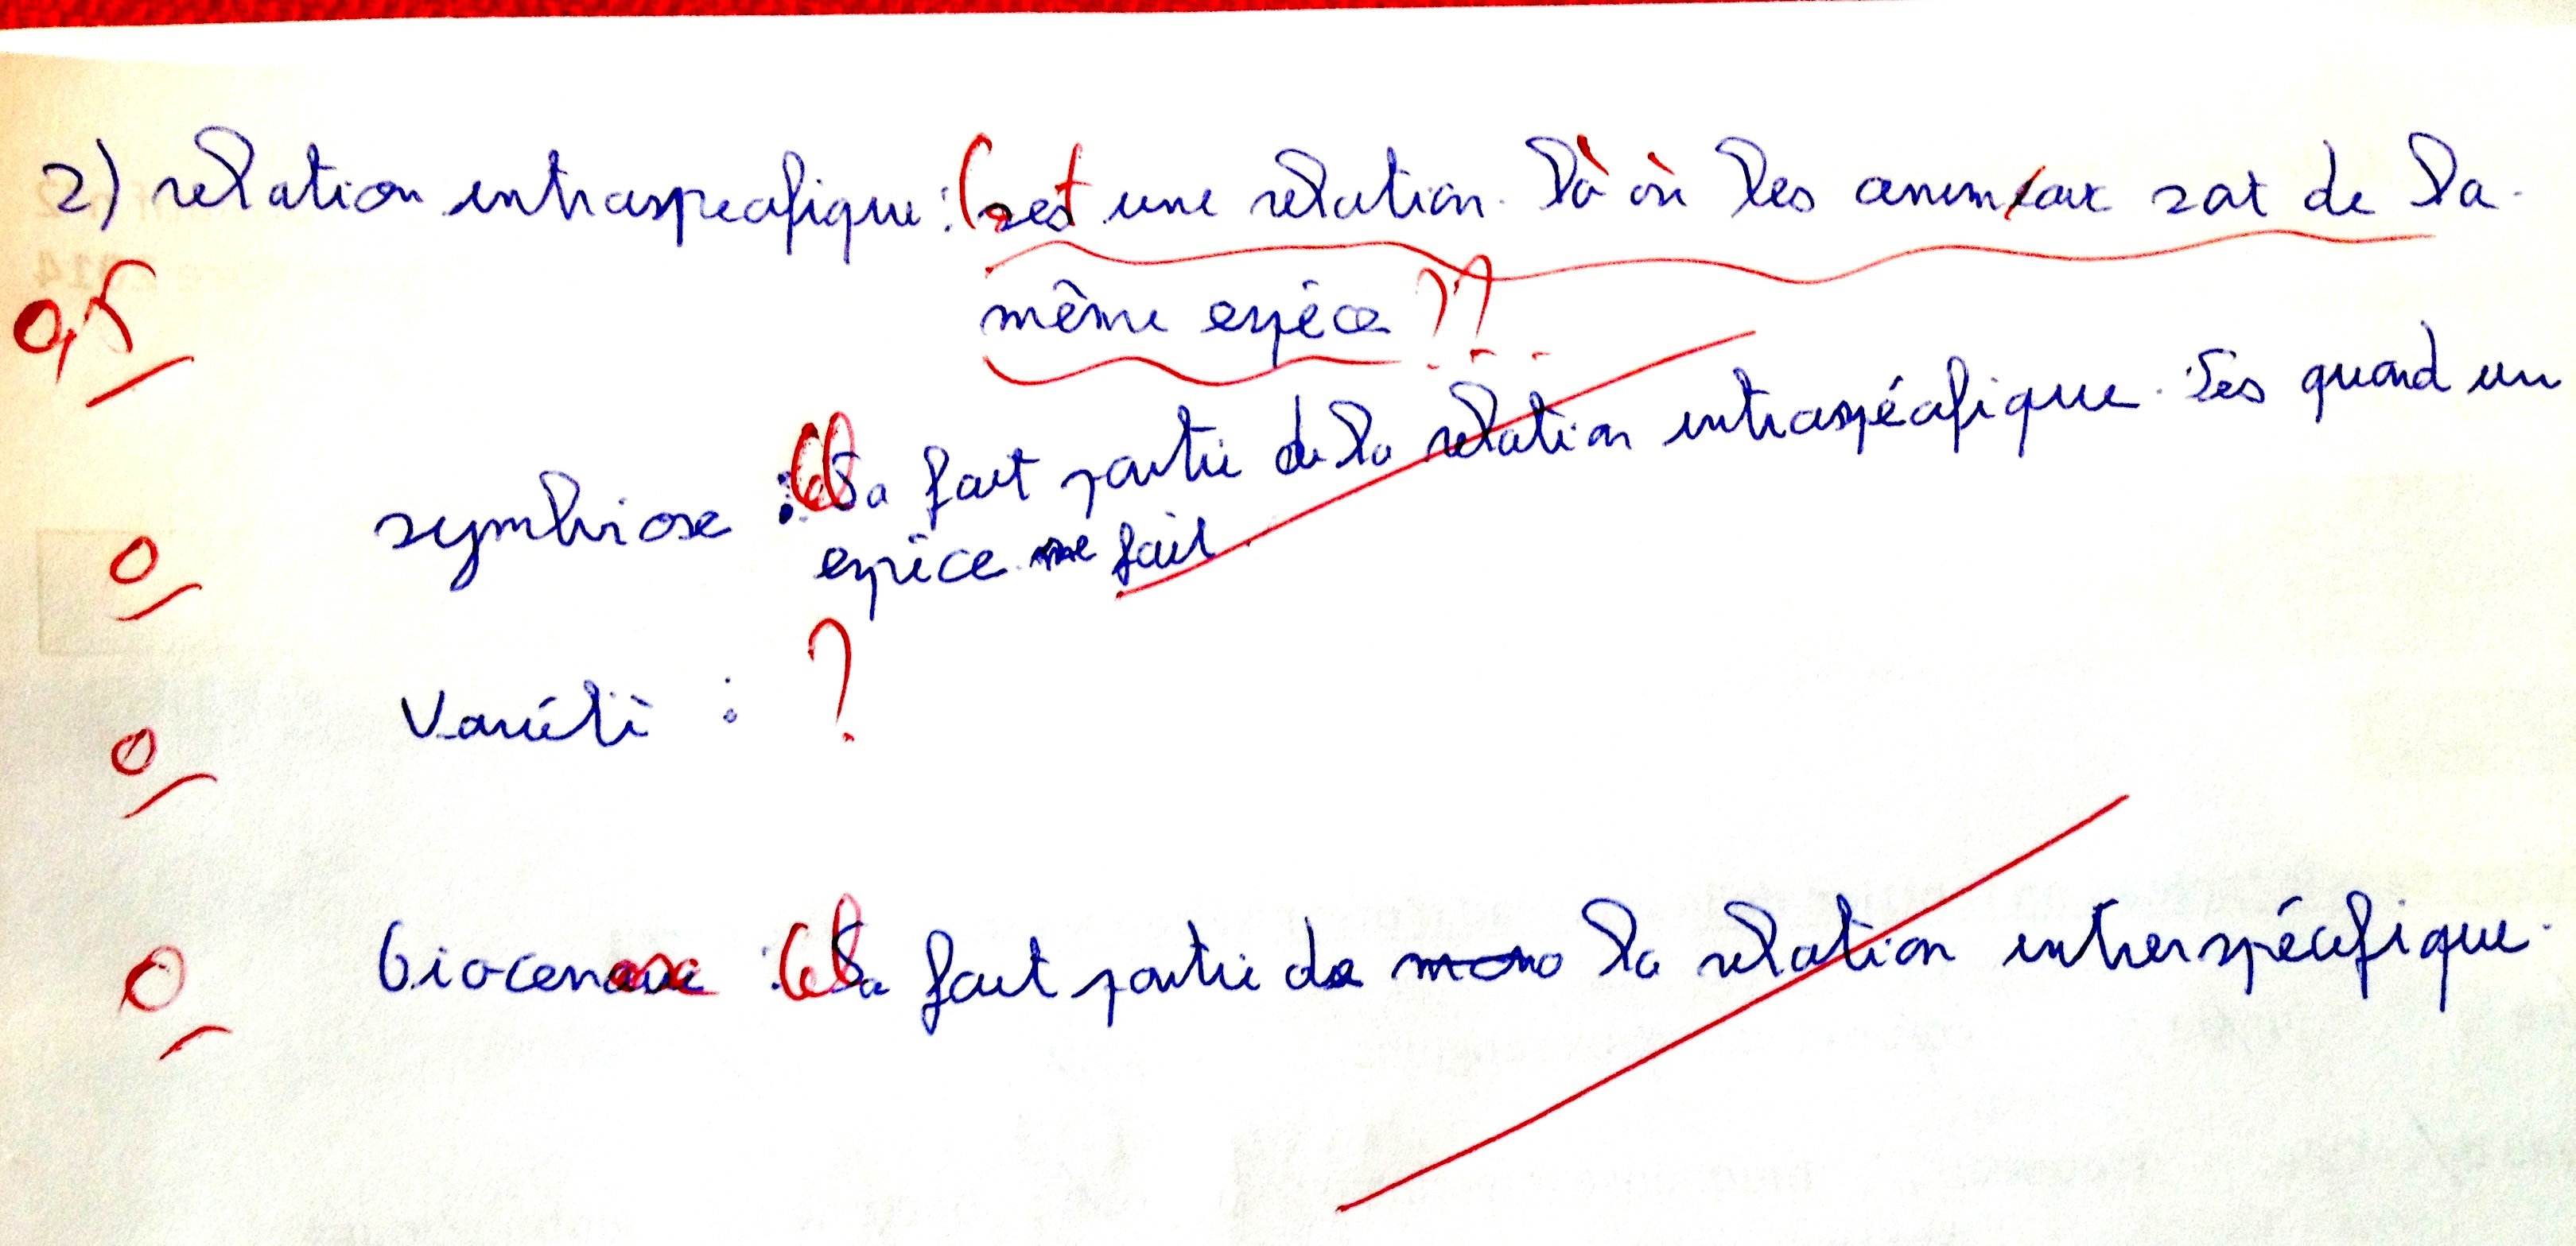 2) relation intraspecifique : C'est une relation là où les animaux sont de la
même espèce ??
0,5
symbiose : Cela fait partie de la relation intraspécifique. Ses quand un
espèce me fait
0
Variété : ?
0
biocenose : Cela fait partie de la relation interspécifique.
0